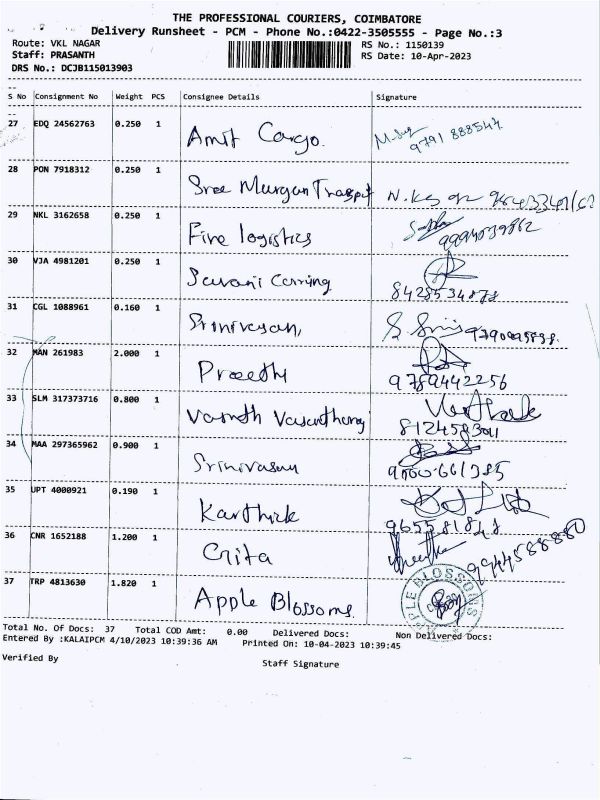 THE PROFESSIONAL COURIERS, COIMBATORE
Delivery Runsheet - PCM - Phone No.:0422-3505555 - Page No.:3
Route: VKL NAGAR RS No.: 1150139
Staff: PRASANTH RS Date: 10-Apr-2023
DRS No.: DCJB115013903
S No Consignment No Weight PCS Consignee Details Signature
27 EDQ 24562763 0.250 1 Amit Cargo.
28 PON 7918312 0.250 1 Sree Murgan
29 NKL 3162658 0.250 1 Five logistics 9994039862
30 VJA 4981201 0.250 1 Savani
8428534878
31 CGL 1088961 0.160 1 Srinivasan,
32 MAN 261983 2.000 1 Preethi
9789442256
33 SLM 317373716 0.800 1
8124583011
34 MAA 297365962 0.900 1 Srinivasan
35 UPT 4000921 0.190 1 Karthick
36 CNR 1652188 1.200 1 9944588880
37 TRP 4813630 1.820 1 Apple Blossoms.
APPLE BLOSSOMS
Total No. Of Docs: 37 Total COD Amt: 0.00 Delivered Docs: Non Delivered Docs:
Entered By :KALAIPCM 4/10/2023 10:39:36 AM Printed On: 10-04-2023 10:39:45
Verified By Staff Signature